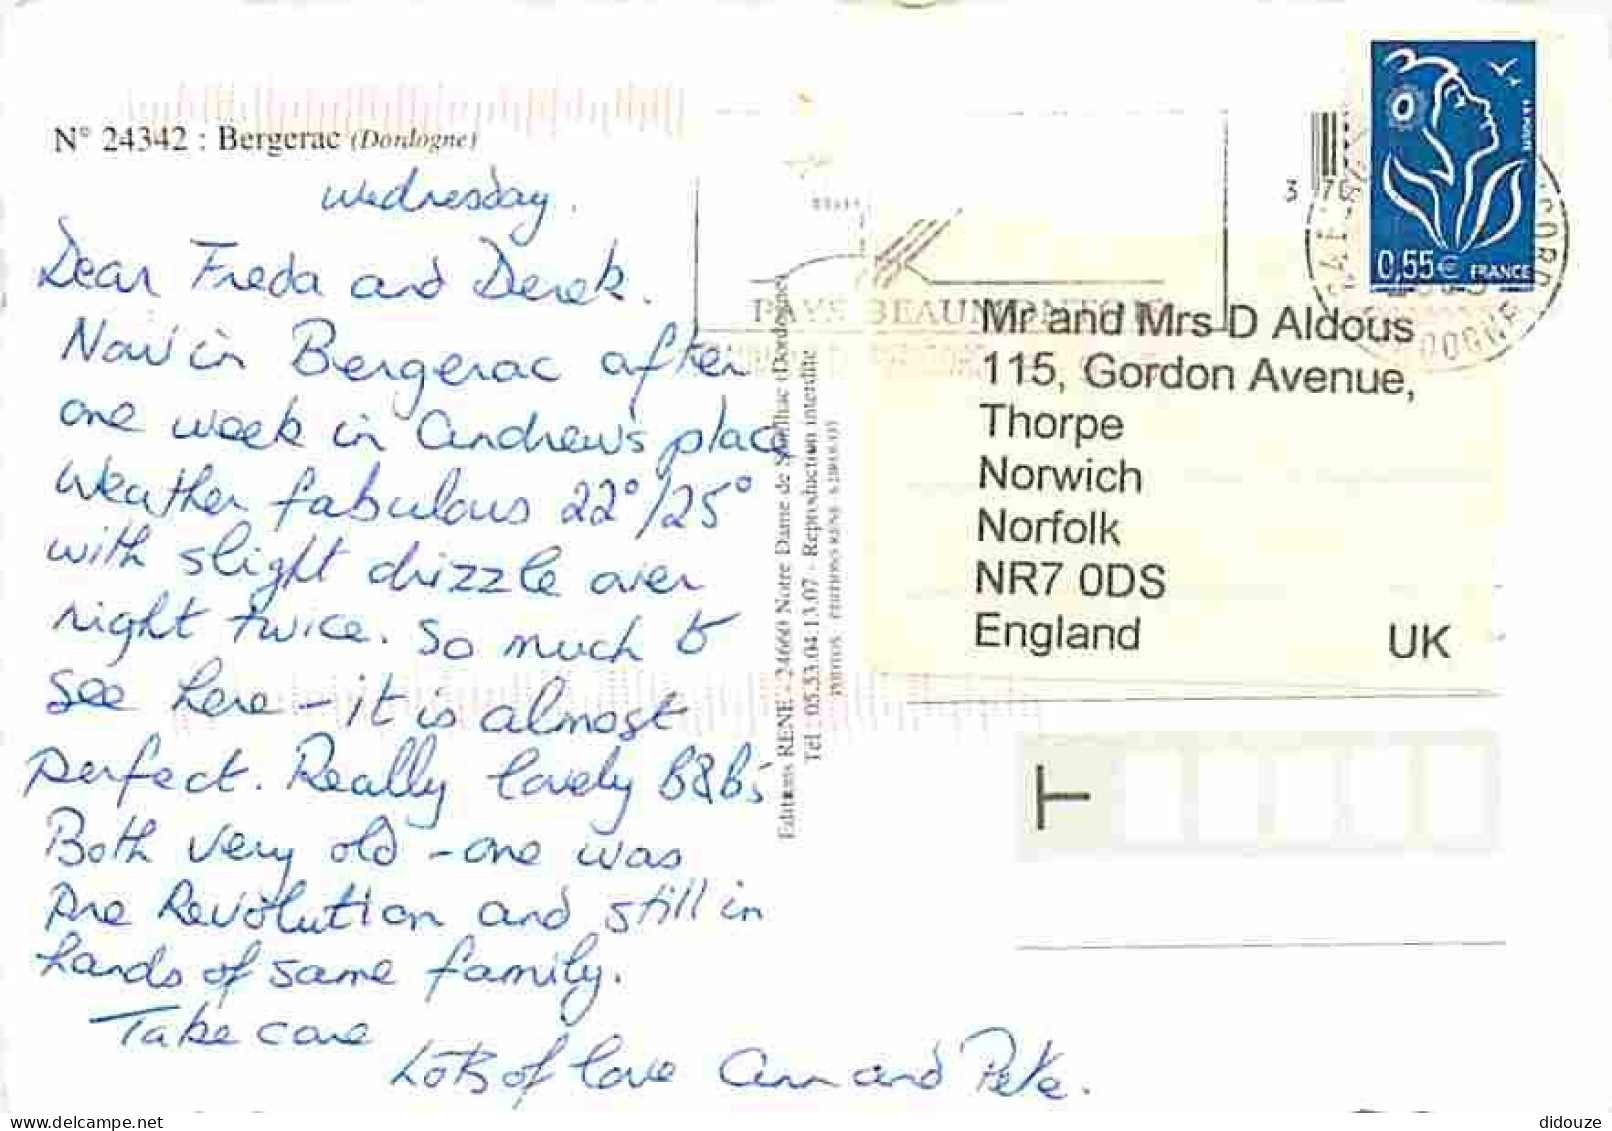 N° 24342 : Bergerac (Dordogne)
Wednesday.
Dear Freda and Derek.
Now in Bergerac after
one week in Andrew's place
Weather fabulous 22°/25°
with slight drizzle over
night twice. So much to
see here - it is almost
perfect. Really lovely B&B's
Both very old - one was
Pre Revolution and still in
hands of same family.
Take care
Lots of love Ann and Pete.
Editions RENE - 24660 Notre Dame de Sanilhac (Dordogne)
Tél : 05.53.04.13.07 - Reproduction interdite
PHOTOS EDITIONS RENE
PAYS BEAUMONTOIS
3 70
0,55€ FRANCE
Mr and Mrs D Aldous
115, Gordon Avenue,
Thorpe
Norwich
Norfolk
NR7 0DS
England UK
T
didouze